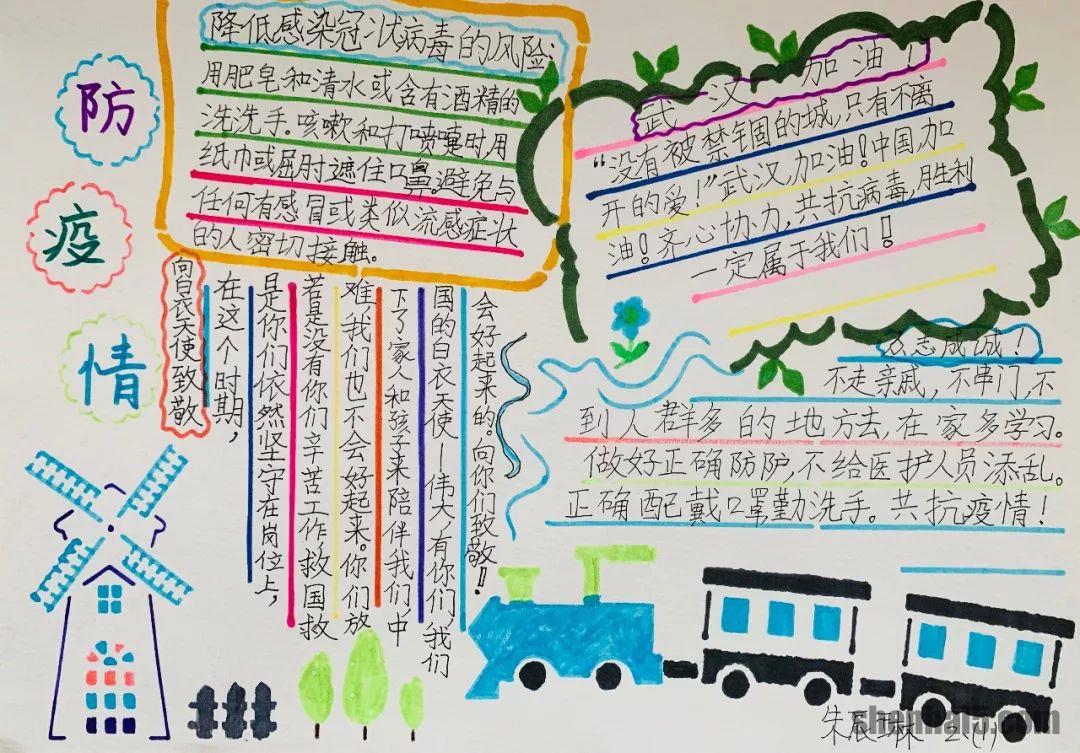 防
疫
情
降低感染冠状病毒的风险:
用肥皂和清水或含有酒精的
洗洗手。咳嗽和打喷嚏时用
纸巾或屈肘遮住口鼻。避免与
任何有感冒或类似流感症状
的人密切接触。
武汉加油!
“没有被禁锢的城,只有不离
开的爱!”武汉加油!中国加
油!齐心协力,共抗病毒,胜利
一定属于我们!
向白衣天使致敬
在这个时期,
是你们依然坚守在岗位上,
若是没有你们辛苦工作救国救
难,我们也不会好起来。你们放
下了家人和孩子来陪伴我们,中
国的白衣天使—伟大,有你们,我们
会好起来的。向你们致敬!!
众志成诚!
不走亲戚,不串门,不
到人群多的地方去,在家多学习。
做好正确防护,不给医护人员添乱。
正确配戴口罩勤洗手。共抗疫情!
朱辰琳 2.(1)